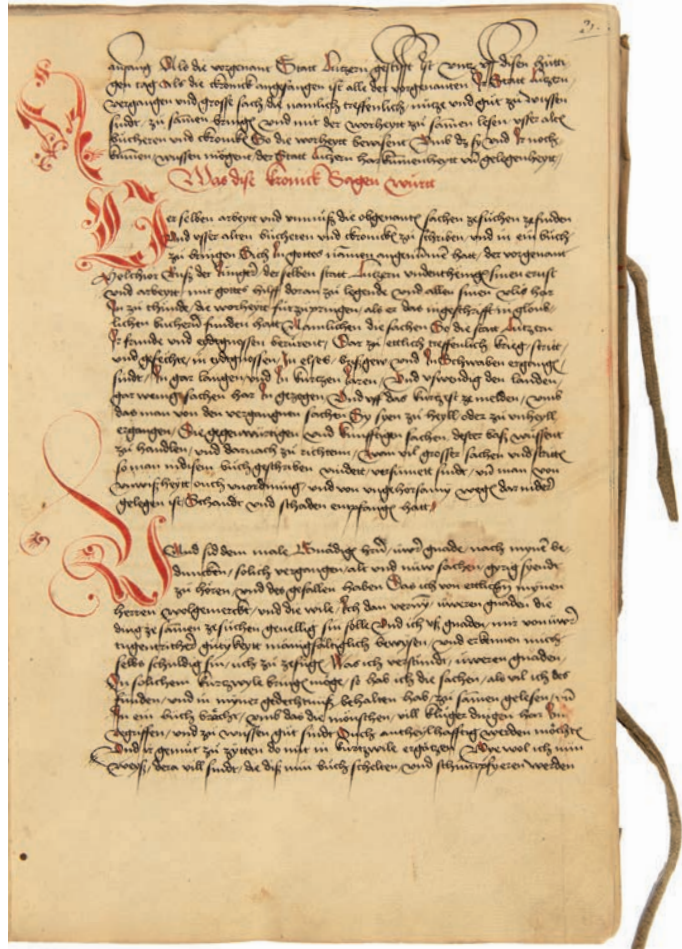 2.
anfang Als die vorgenant Statt Lutzern gestifft ist vntz vff disen hütti
gen tag als die kronick angefangen ist alle der vorgenanten Ir Statt Lutzern,
vergangen vnd grosse sach die namlich treffenlich, nütze vnd güt zü wissen
sindt, zü samen bringen vnd mit der worheytt zü samen lesen vsser alten
büchern vnd kronicken So die worheytt bewisent Vmb dz sy vnd Ir noch
kumen, wissen mögent der Statt Lutzern har kumenheytt vnd gelegenheytt,
Was dise kronick Sagen württ
Der selben arbeytt vnd vnmüß die obgenanten sachen ze süchen ze finden
Vnd vsser alten bücheren vnd kronicken zü schriben, vnd in ein büch,
zü bringen Sich In gottes namen angenomen hatt, der vorgenant
Melchior Ruß der Jünger der selben statt Lutzern sinen ernst
vnd arbeytt, mit gottes hilff doran zü legende vnd allen sinen vlis har
In zü thünde, die worheytt für zü bringen, als er das in geschrifft in gloub
lichen büchern funden hatt Namlichen die sachen So die statt Lutzern
Ir fründe vnd eydgnossen berürent, Dar zü ettlich treffenlich krieg, stritt
vnd gefechte, in eydgnossen, In elses, vnd In Schwaben ergangen
sindt, In gar langen, vnd In kurtzen Jaren, Vnd vswendig den landen,
gar wenig sachen har In gezogen, Vnd vff das kürtzest ze melden, vmb
das man von den vergangnen sachen Sy syen zü heyll oder zü vnheyll
ergangen, Die gegenwürtigen vnd künfftigen sachen, dester baß wüssent
zü handlen, vnd darnach zü richtenn, wan vil grosser sachen vnd stritten
so man in disem büch geschriben vindett, versumett sindt, vnd man von
vnwißheytt ouch vnordnung, vnd von vngehorsamy wegen dar nider
gelegen ist, Schandt vnd schaden empfangen hatt,
Vnd sid dem male Gnädigen heren, üwer gnade, nach mynem be
duncken, solich vergangen, alt vnd nüw sachen, gyrig syendt
zü hören, vnd des gefallen haben Das ich von ettlichen mynen
herren wolgemerckt, vnd die wile, Ich dan vernym, üweren gnaden, die
ding ze samen ze süchen gevellig sin solle Vnd ich vß gnaden, mir von üwer
tugentricher gütykeytt manigfaltiglich bewysen, vnd erkennen mich
selbs schuldig sin, üch zü fügen Was ich verstündt, üweren gnaden,
In solichem kurtzwyle bringen möge, so hab ich die sachen, als vil ich des
funden, vnd in myner gedechtniß behalten hab, zü samen gelesen, vnd
In ein büch brächt, vmb das die mönschen, vill klüger dingen har Inn
begriffen, vnd zü wüssen güt sindt Ouch antheylhafftig werden möchten
Vnd ir gemüt zü zytten do mit in kurtzwile ergötzen Wie wol ich nun
weyß, dera vill sindt, die diß min büch schelten vnd schimpfyeren werden